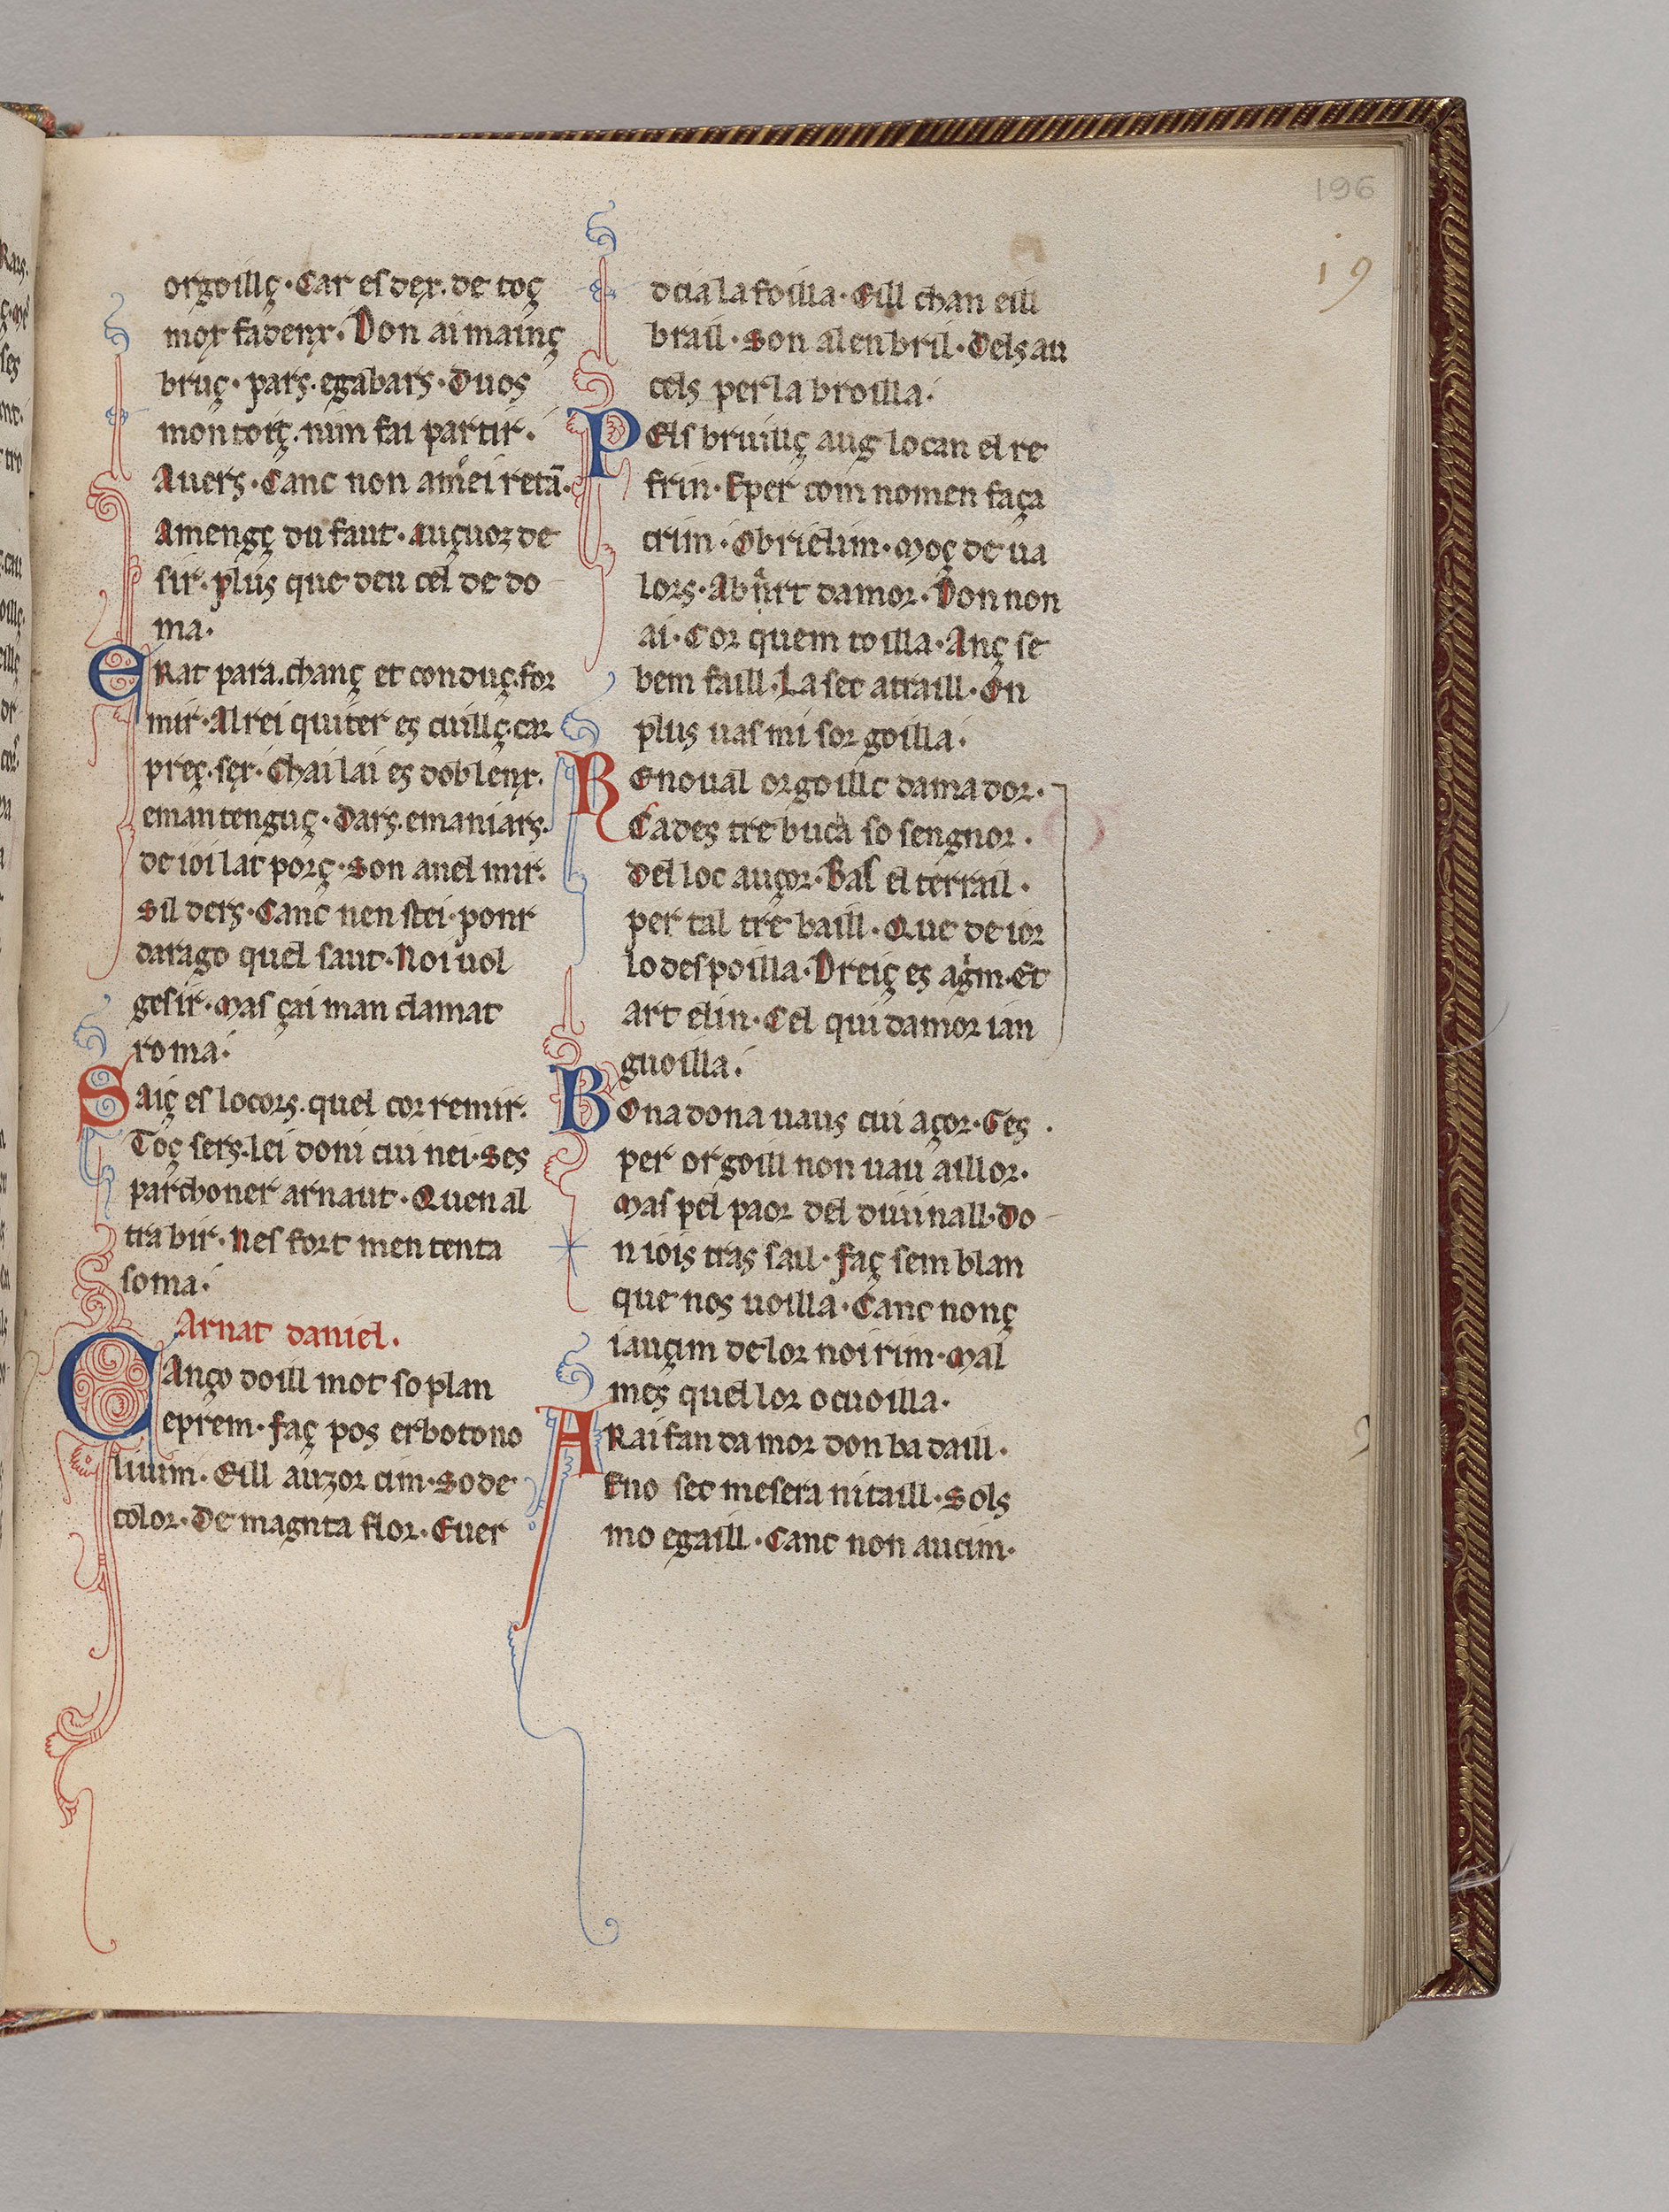 196
19
orgoillç. Car es dex. de toç
mor fadenx. Don ai mainç
bruç. pars. egabars. Duos
mon toiç. nim fai partir.
Auers. Canc non amei retā.
Amengç du faut. auçuor de
sir. plus que deu cel de do
ma.
ERat para. chanç et conduç. for
mir. Al rei quiter es cuillç. car
preç. ser. Chai lai es doblenx.
emantenguç. Dars. emaniars.
de ioi lat porç. Son anel mir.
Sil ders. Canc nen stei. ponr
darago quel saut. Noi uol
gesir. mas çai man clamat
roma.
Saiç es locors. quel cor remir.
Toç sers. lei doni cui nei. Ses
parchoner arnaut. Quen al
tra bir. nes fort men tenta
soma.
Arnat daniel.
CAnço doill mot so plan
eprem. faç pos erbotono
liuim. Eill auzor cim. So de
color. De magnta flor. Euer
dcia la foilla. Eill chan eill
brail. Son alenbril. Dels au
cels per la broilla.
PEls bruillç aug lo can el re
frin. Eper com no men faça
crim. Obrielim. moç de ua
lors. Ab art damor. Don non
ai. Cor quem toilla. Anç se
bem faill. La sec atraill. On
plus uas mi sor goilla.
REno ual orgoillc damador.
Cades tre buca so sengnor.
del loc auçor. Bas el terrail.
per tal tre baill. Que de ior
lo despoilla. Dreiç es agrim. Et
art elin. Cel qui damor ian
guoilla.
BOna dona uaus cui açor. Ges.
per orgoill non uau aillor.
mas pel paor del diuinall. do
n iois tras sail. faç sem blan
que nos uoilla. Canc nonç
iauçim de lor noirim. mal
mes quel lor ocuoilla.
ARai fan damor don badaill.
Eno sec mesera nitaill. Sols
mo egaill. Canc non aucim.